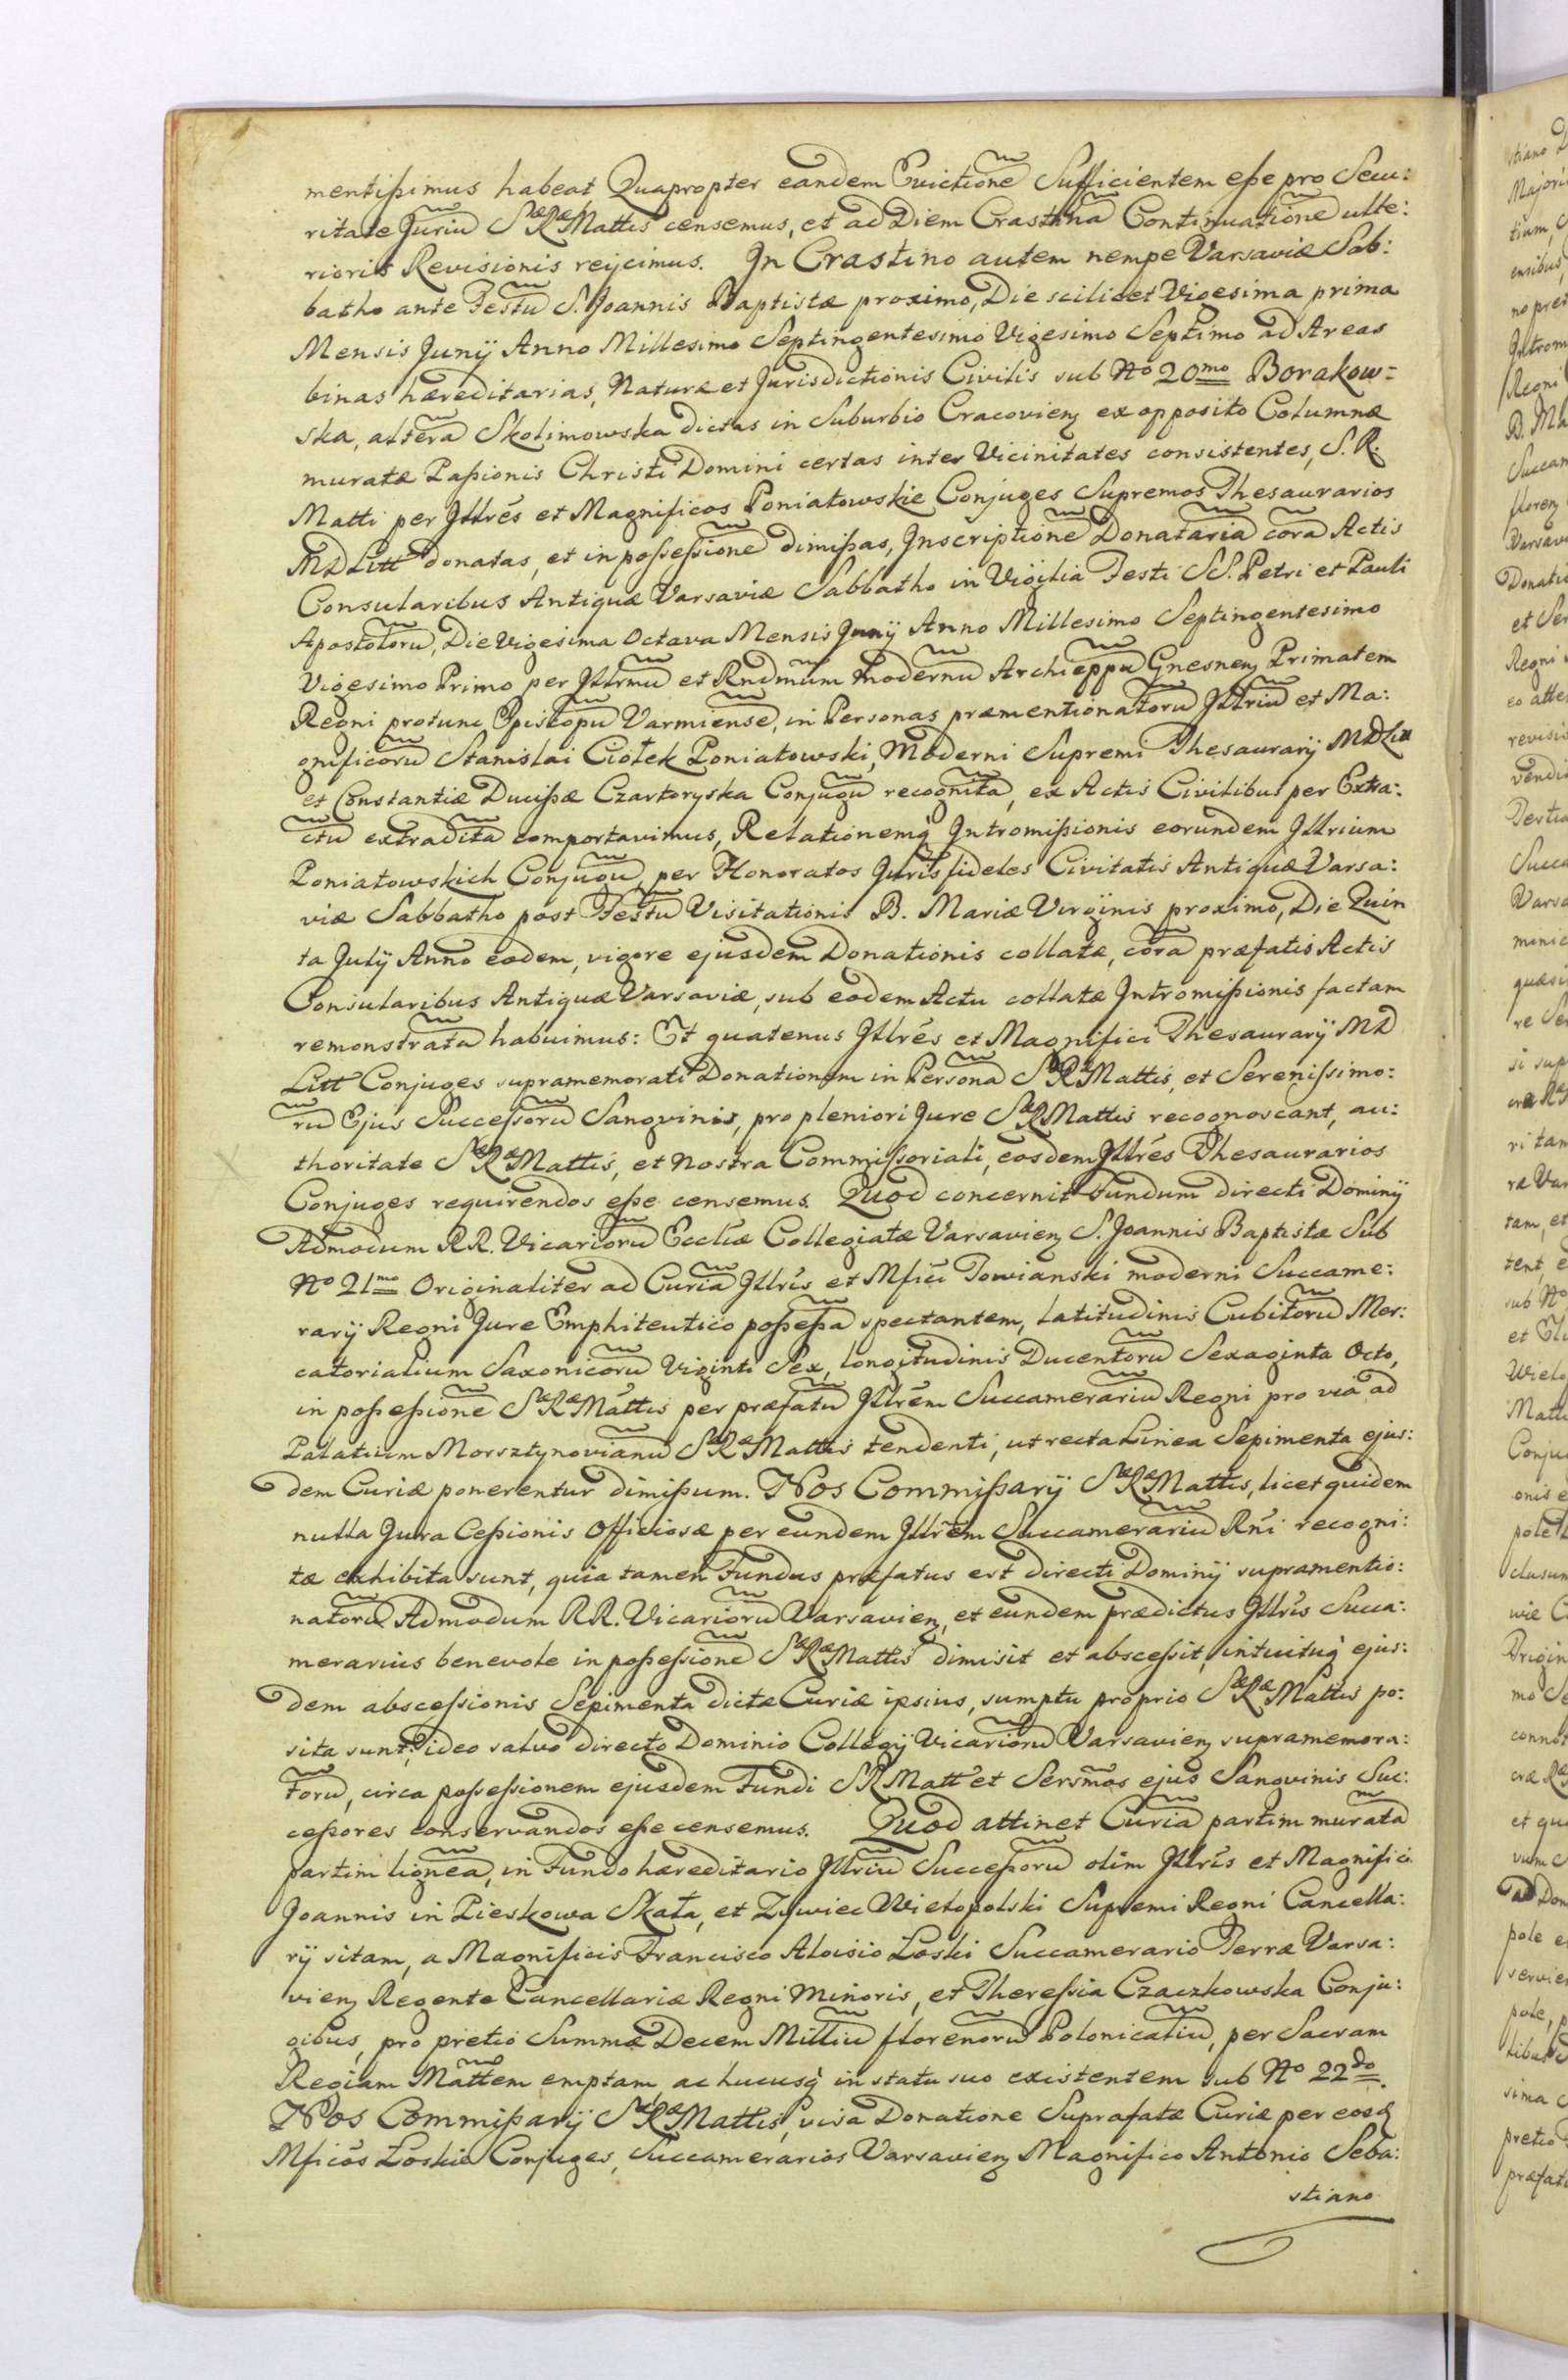 mentißimus habeat Quapropter eandem Evictione Sufficientem eße pro Secu:
ritate Juriu SæRæMattis censemus, et ad Diem Crastina Continuatione ulte:
rioris Revisionis reijcimus. In Crastino autem nempe Varsaviæ Sab:
batho ante Festu S. Joannis Baptistæ proximo, Die scilicet Vigesima prima
Mensis Junÿ Anno Millesimo Septingentesimo Vigesimo Septimo ad Areas
binas hæreditarias, Naturæ et Jurisdictionis Civilis sub No 20mo Borakow=
ska, altera Skolimowska dictas in Suburbio Cracovien ex opposito Columnæ
muratæ Paßionis Christi Domini certas inter Vicinitates consistentes, S. R.
Matti per Jllrés et Magnificos Poniatowskie Conjuges Supremos Thesaurarios
MDLitt donatas, et in poßeßione dimißas, Inscriptione Donataria cora Actis
Consularibus Antiquæ Varsaviæ Sabbatho in Vigilia Festi SS. Petri et Pauli
Apostoloru, Die Vigesima Octava Mensis Junÿ Anno Millesimo Septingentesimo
Vigesimo Primo per Jllrmu et Rndmum Modernu Archieppu Gnesnen Primatem
Regni protunc Episcopu Varmiense, in Personas præmentionatoru Jllriu et Ma:
gnificoru Stanislai Ciołek Poniatowski, Moderni Supremi Thesaurarÿ MDLitt
et Constantiæ Ducißæ Czartoryska Conjugu recognita, ex Actis Civilibus per Extra:
ctu extradita comportavimus, Relationemq Intromißionis eorundem Jllrium
Poniatowskich Conjugu, per Honoratos Juris fideles Civitatis Antiquæ Varsa:
viæ Sabbatho post Festu Visitationis B. Mariæ Virginis proximo, Die Quin
ta Julÿ Anno eodem, vigore ejusdem Donationis collatæ, cora præfatis Actis
Consularibus Antiquæ Varsaviæ, sub eodem Actu collatæ Intromißionis factam
remonstrata habuimus: Et quatenus Jllrés et Magnifici Thesaurarÿ MD
Litt Conjuges supramemorati Donationem in Persona SæRæMattis, et Serenißimo:
ru Ejus Succeßoru Sangvinis, pro pleniori Jure SæRMattis recognoscant, au:
thoritate SæRæMattis, et Nostra Commißoriali, eosdem Jllrés Thesaurarios
Conjuges requirendos eße censemus. Quod concernit Fundum directi Dominÿ
Admodum RR. Vicarioru Eccliæ Collegiatæ Varsavien S. Joannis Baptistæ Sub
No 21mo Originaliter ad Curia Jllris et Mfici Towianski moderni Succame:
rarÿ Regni Jure Emphiteutico poßeßa spectantem, latitudinis Cubitoru Mer:
catorialium Saxonicoru Viginti Sex, longitudinis Ducentoru Sexaginta Octo,
in poßeßione SæRæMattis per præfatu Jllrém Succamerariu Regni pro via ad
Palatium Morsztynovianu SæRæMattis tendenti, ut recta Linea Sepimenta ejus:
dem Curiæ ponerentur dimißum. Nos Commißarÿ SæRæMattis, licet quidem
nulla Jura Ceßionis Officiosæ per eundem Jllrém Succamerariu Rni recogni:
tæ exhibita sunt, quia tamen Fundus præfatus est directi Dominÿ supramentio:
natoru Admodum RR. Vicarioru Varsavien, et eundem prædictus Jllris Succa:
merarius benevole in poßeßione SæRæMattis dimisit et absceßit, intuituq ejus:
dem absceßionis Sepimenta dictæ Curiæ ipsius, sumptu proprio SæRæMattis po:
sita sunt; ideo salvo directo Dominio Collegÿ Vicarioru Varsavien supramemora:
toru, circa poßeßionem ejusdem Fundi SRMatt et Sersmos ejus Sangvinis Suc:
ceßores conservandos eße censemus. Quod attinet Curia partim murata
partim lignea, in Fundo hæreditario Jllriu Succeßoru olim Jllris et Magnifici
Joannis in Pieskowa Skała, et Zywiec Wielopolski Supremi Regni Cancella:
rÿ sitam, a Magnificis Francisco Aloisio Loski Succamerario Terræ Varsa:
vien Regente Cancellariæ Regni Minoris, et Thereßia Czaczkowska Conju:
gibus, pro pretio Summæ Decem Milliu florenoru Polonicaliu, per Sacram
Regiam Mattem emptam, ac hucusq in statu suo existentem sub No 22do.
Nos Commißarÿ SæRæMattis, visa Donatione Suprafatæ Curiæ per eosd
Mficos Loskie Conjuges, Succamerarios Varsavien Magnifico Antonio Seba:
stiano